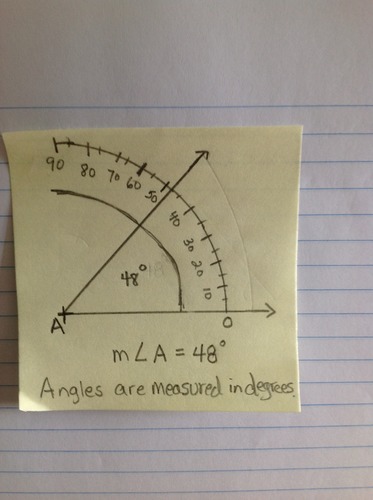 90 80 70 60 50 40 30 20 10 0
48°
A
m∠A = 48°
Angles are measured in degrees.